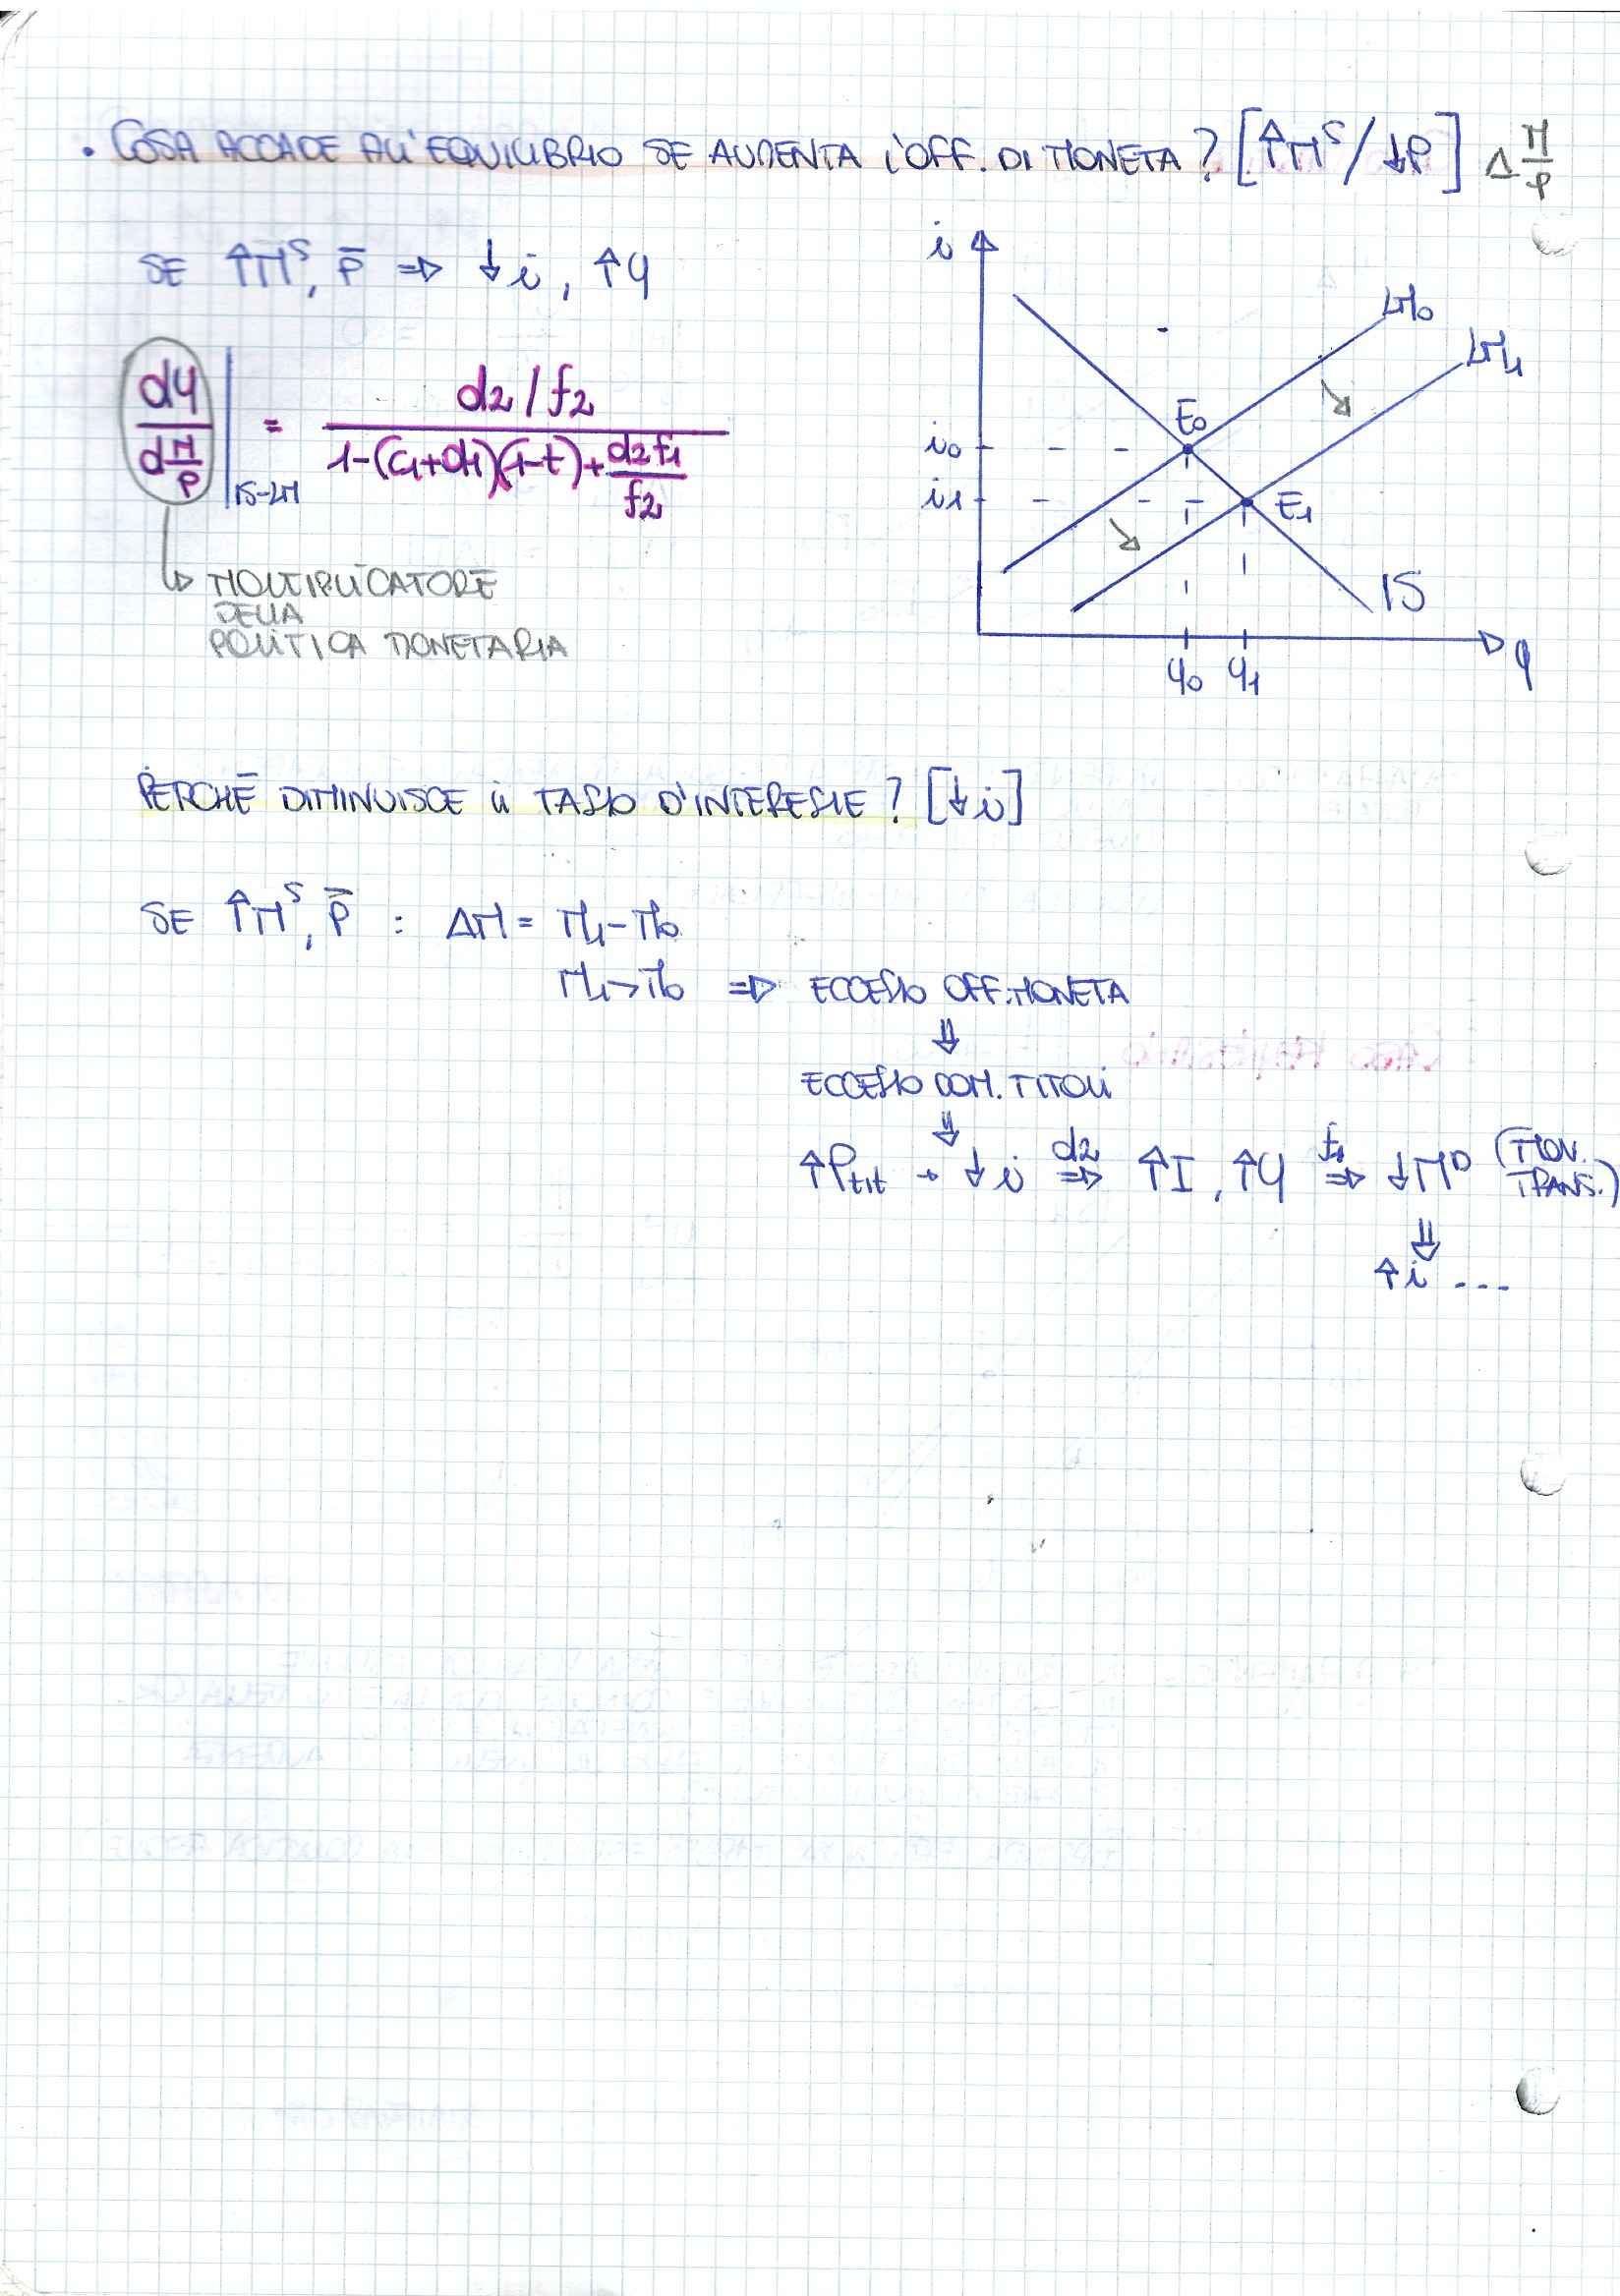 • COSA ACCADE ALL'EQUILIBRIO SE AUMENTA L'OFF. DI MONETA? [↑Mˢ/↓P] Δ M/P
SE ↑Mˢ, P̄ ⇒ ↓i, ↑Y
dY / d M/P |IS-LM = d2/f2 / 1-(c1+d1)(1-t)+ d2f1/f2
↳ MOLTIPLICATORE
DELLA
POLITICA MONETARIA
i
LM0
LM1
E0
i0
i1
E1
IS
Y0 Y1
Y
PERCHÉ DIMINUISCE IL TASSO D'INTERESSE? [↓i]
SE ↑Mˢ, P̄ : ΔM = M1-M0
M1>M0 ⇒ ECCESSO OFF. MONETA
⇓
ECCESSO DOM. TITOLI
⇓
↑Ptit → ↓i d2⇒ ↑I, ↑Y f1⇒ ↓Mᴰ (MOV. TRANS.)
⇓
↑i ...